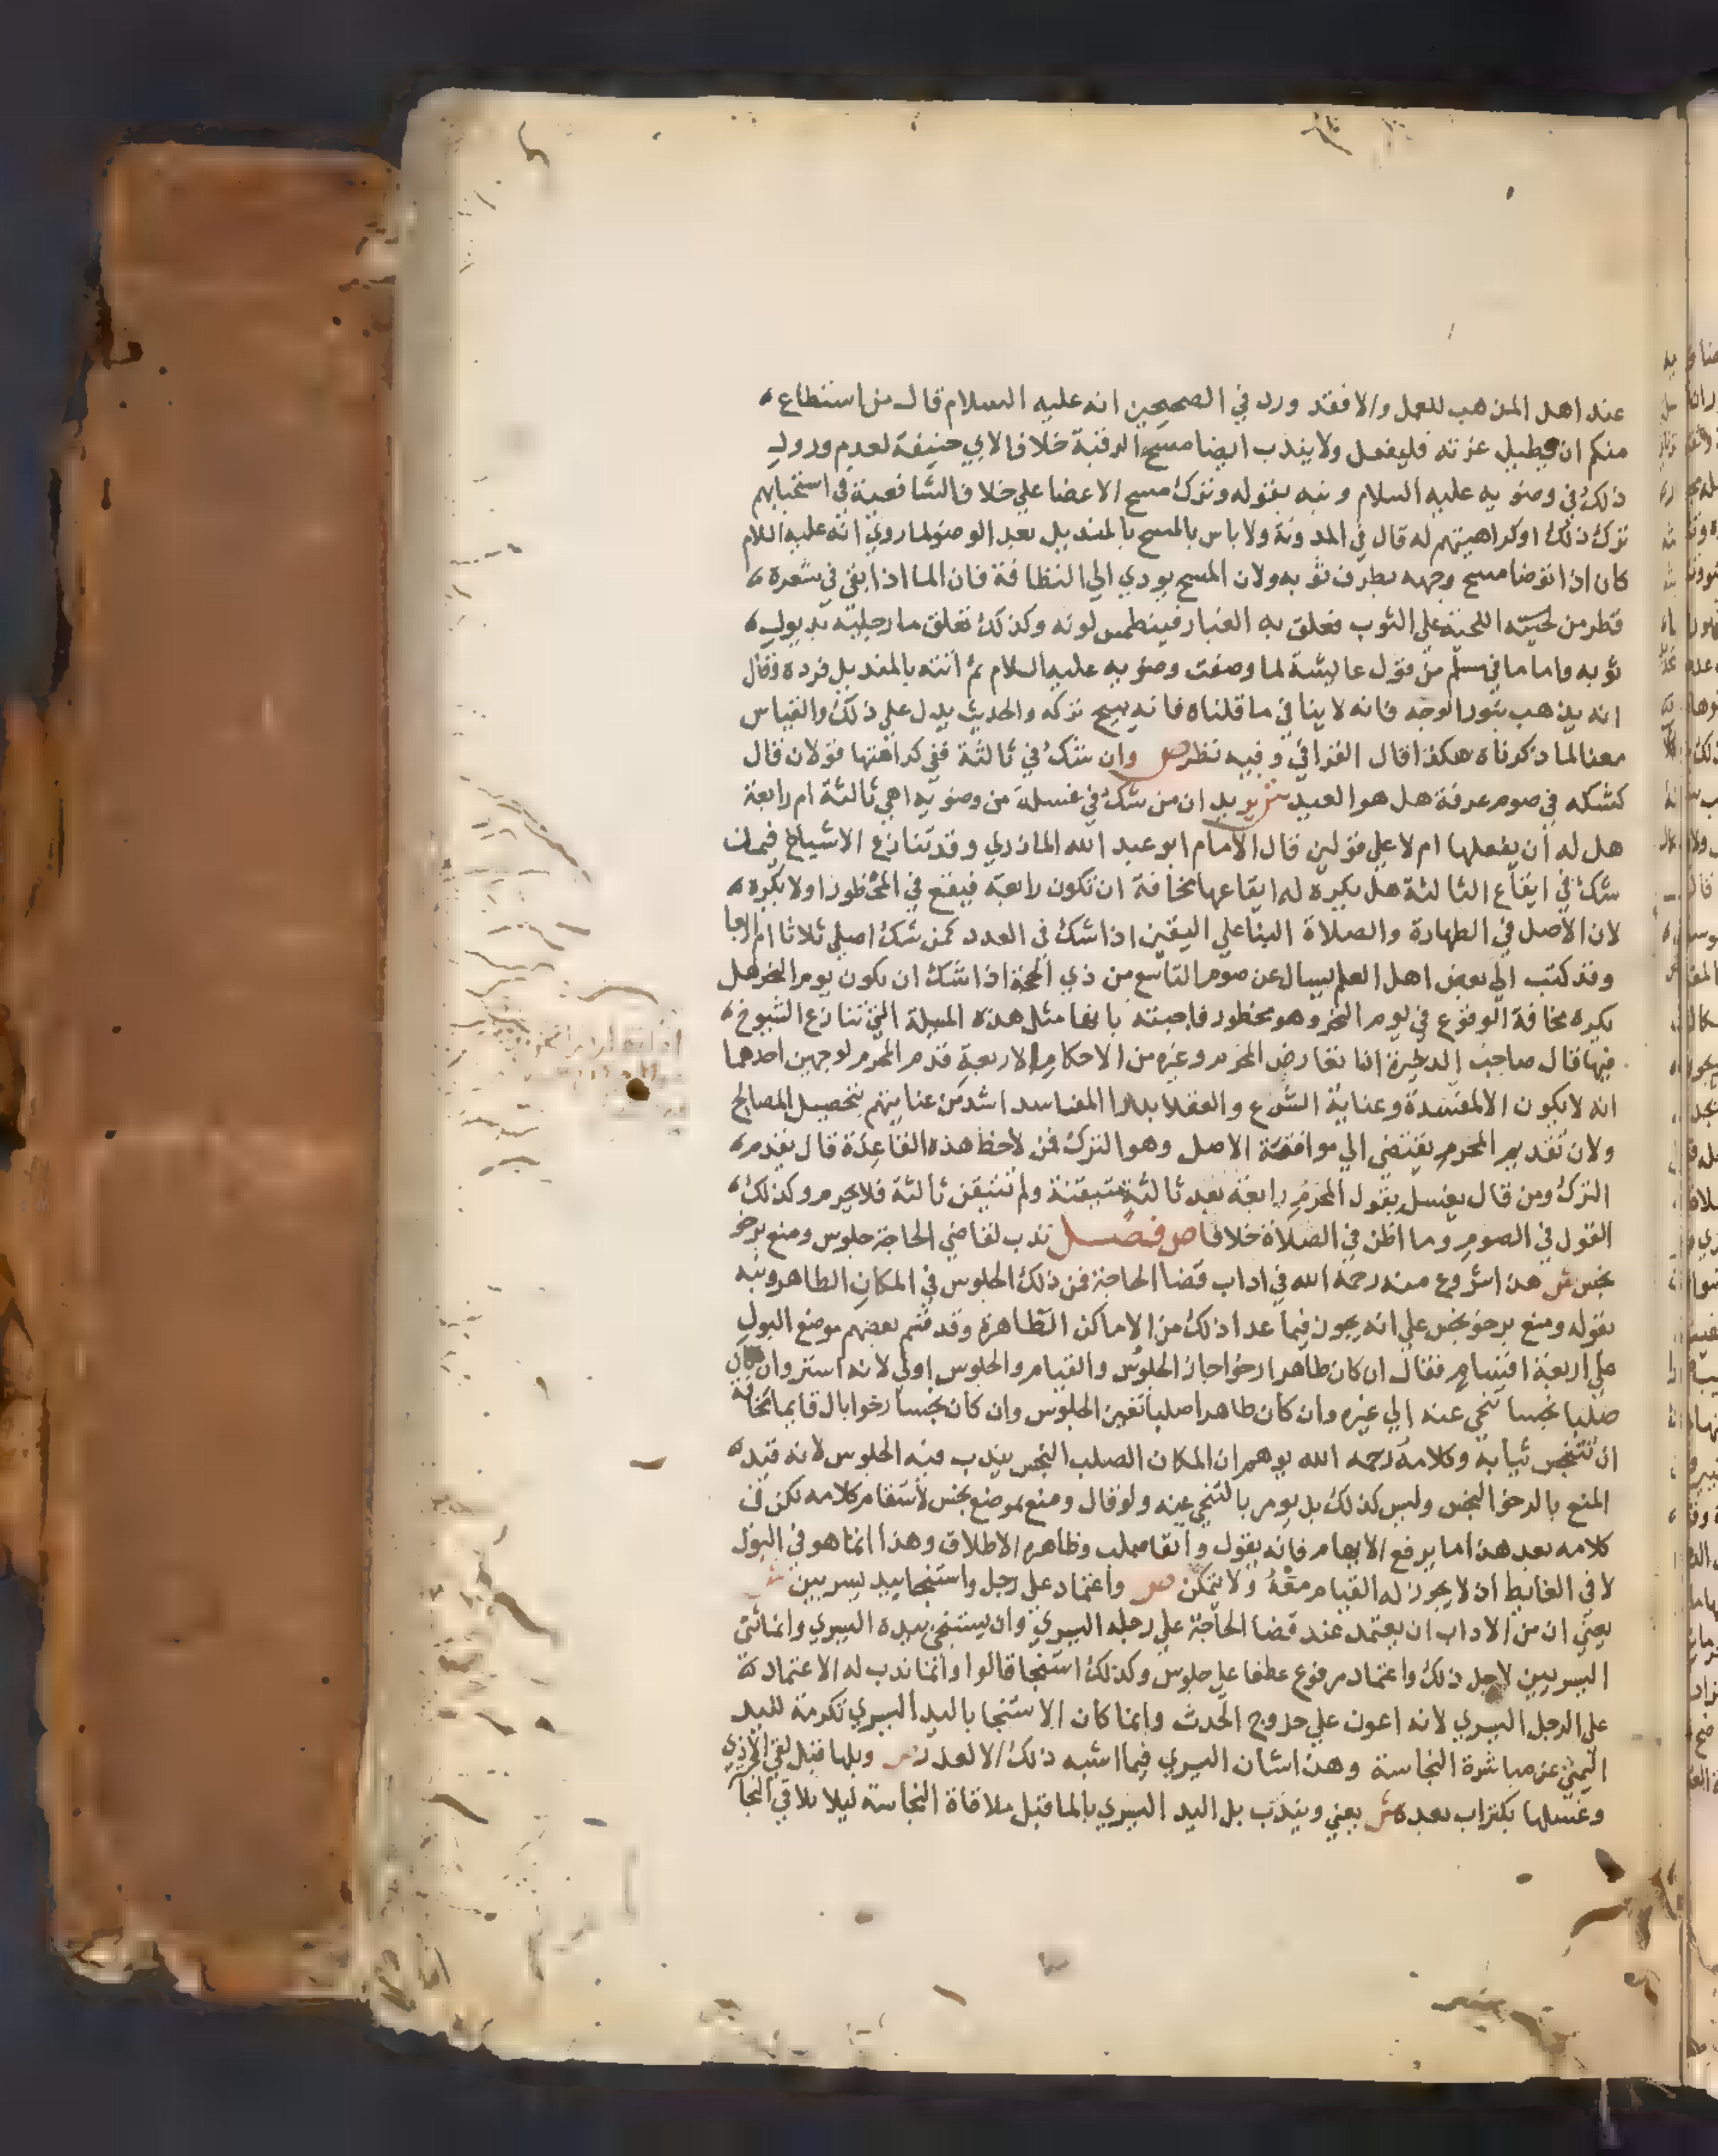 عند اهل المذهب للعمل والا فقد ورد في الصحيحين انه عليه السلام قال من استطاع
منكم ان يطيل غرته فليفعل ولا يندب ايضا مسح الرقبة خلافا لابي حنيفة لعدم ورود
ذلك في وضويه عليه السلام ونبه بقوله وترك مسح الاعضا علي خلاف الشافعية في استحبابهم
ترك ذلك او كراهيتهم له قال في المدونة ولا باس بالمسح بالمنديل بعد الوضو لما روي انه عليه السلام
كان اذا توضا مسح وجهه بطرف ثوبه ولان المسح يودي الي النظافة فان الما اذا بقي في شعره
قطر من لحيته اللحية علي الثوب فعلق به الغبار فينطمس لونه وكذلك تعلق ما رجليه بذيول
ثوبه واما ما في مسلم من قول عايشة لما وصفت وضويه عليه السلام ثم اتته بالمنديل فرده وقال
انه يذهب بنور الوجه فانه لا ينافي ما قلناه فانه يبيح تركه والحديث يدل علي ذلك والقياس
معنا لما ذكرناه هكذا قال القرافي وفيه نظر ص وان شك في ثالثة ففي كراهتها قولان قال
كشكه في صوم عرفة هل هو العيد ش يريد ان من شك في غسلة من وضويه اهي ثالثة ام رابعة
هل له ان يفعلها ام لا علي قولين قال الامام ابو عبد الله المازري وقد تنازع الاشياخ فيمن
شك في ايقاع الثالثة هل يكره له ايقاعها مخافة ان تكون رابعة فيقع في المحظور او لا يكره
لان الاصل في الطهارة والصلاة البنا علي اليقين اذا شك في العدد كمن شك اصلي ثلاثا ام اربعا
وقد كتب الي بعض اهل العلم يسال عن صوم التاسع من ذي الحجة اذا شك ان يكون يوم النحر هل
يكره مخافة الوقوع في يوم النحر وهو محظور فاجبته بانها مثل هذه المسلة التي تنازع الشيوخ
فيها قال صاحب الذخيرة اذا تعارض المحرم وغيره من الاحكام الاربعة قدم المحرم لوجهين احدهما
انه لا يكون الا لمفسدة وعناية الشرع والعقلا بدرا المفاسد اشد من عنايتهم بتحصيل المصالح
ولان تقديم المحرم يقتضي الي موافقة الاصل وهو الترك فمن لاحظ هذه القاعدة قال يقدم
الترك ومن قال يغسل يقول المحرم رابعة بعد ثالثة متيقنة ولم نتيقن ثالثة فلا يحرم وكذلك
القول في الصوم وما اظن في الصلاة خلافا ص فصل ندب لقاضي الحاجة جلوس ومنع برخو
نجس ش هذا شروع منه رحمه الله في اداب قضا الحاجة فمن ذلك الجلوس في المكان الطاهر ونبه
بقوله ومنع برخو نجس علي انه يجوز فيما عدا ذلك من الاماكن الطاهرة وقد قسم بعضهم موضع البول
علي اربعة اقسام فقال ان كان طاهرا رخوا جاز الجلوس والقيام والجلوس اولي لانه استر وان كان
صلبا نجسا تنحي عنه الي غيره وان كان طاهرا صلبا تعين الجلوس وان كان نجسا رخوا بال قايما مخافة
ان تتنجس ثيابه وكلامه رحمه الله يوهم ان المكان الصلب النجس يندب فيه الجلوس لانه قيد
المنع بالرخو النجس وليس كذلك بل يومر بالتنحي عنه ولو قال ومنع بموضع نجس لاستقام كلامه لكن في
كلامه بعد هذا ما يرفع الايهام فانه يقول واتقا صلب وظاهره الاطلاق وهذا انما هو في البول
لا في الغايط اذ لا يجوز له القيام معه ولا يتمكن ص واعتماد علي رجل واستنجا بيد يسريين ش
يعني ان من الاداب ان يعتمد عند قضا الحاجة علي رجله اليسري وان يستنجي بيده اليسري وانما ثني
اليسريين لاجل ذلك واعتماد مرفوع عطفا علي جلوس وكذلك استنجا قالوا وانما ندب له الاعتماد
علي الرجل اليسري لانه اعون علي خروج الحدث وانما كان الاستنجا باليد اليسري تكرمة لليد
اليمني عن مباشرة النجاسة وهذا شان اليسري فيما اشبه ذلك الا لعذر ص وبلها قبل لقي الاذي
وغسلها بكتراب بعده ش يعني ويندب بل اليد اليسري بالما قبل ملاقاة النجاسة ليلا يلاقي النجا